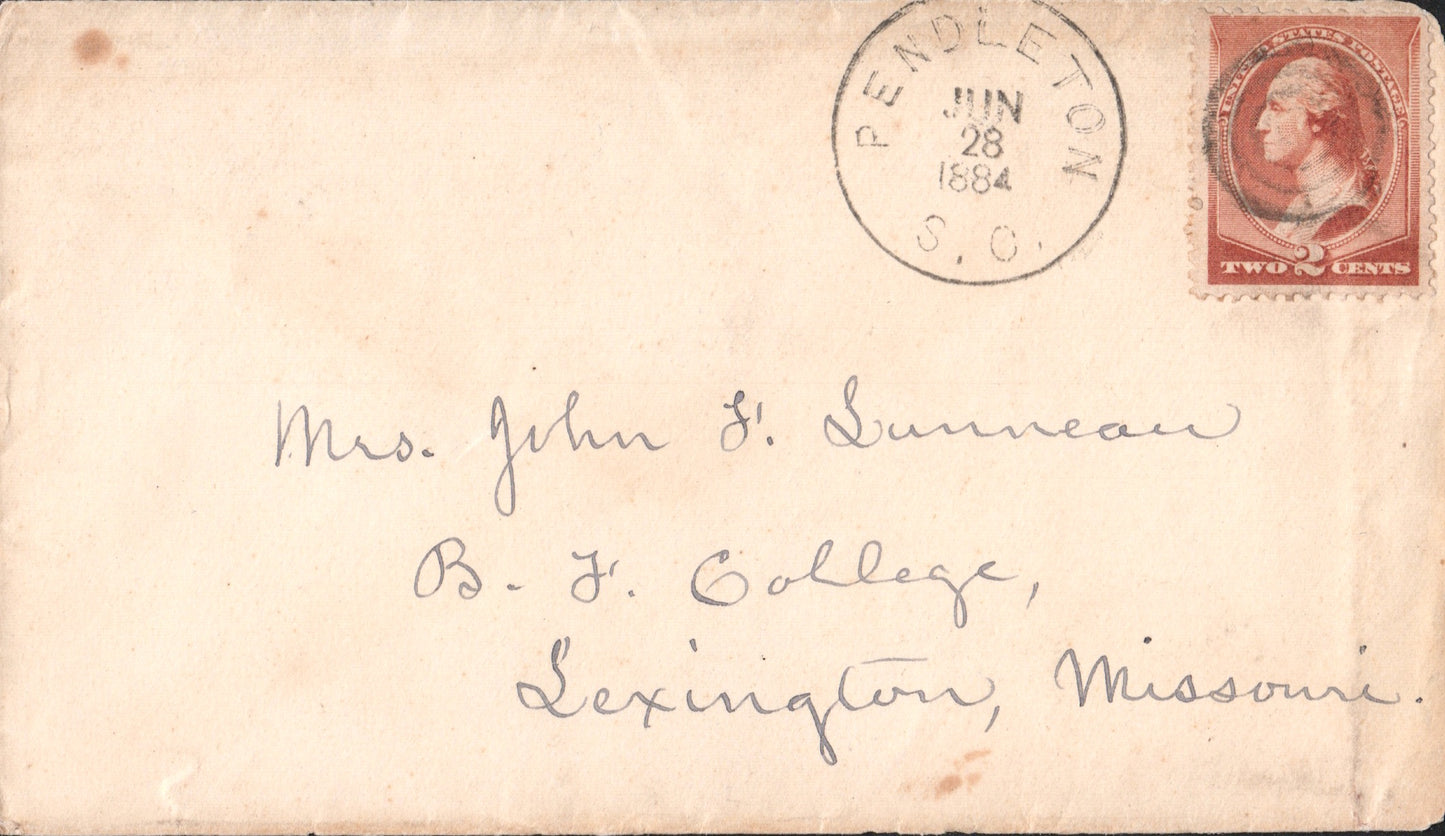 PENDLETON
JUN
28
1884
S. C.
UNITED STATES POSTAGE
TWO 2 CENTS
Mrs. John F. Lunneau
B. F. College,
Lexington, Missouri.